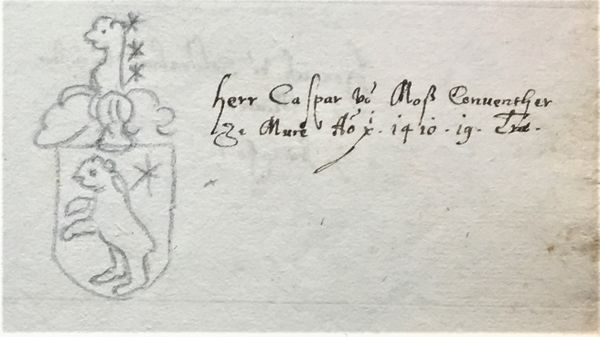 Herr Caspar vō Moß Conventher
ze Mure Aō x̄i . 1410 . 19 .